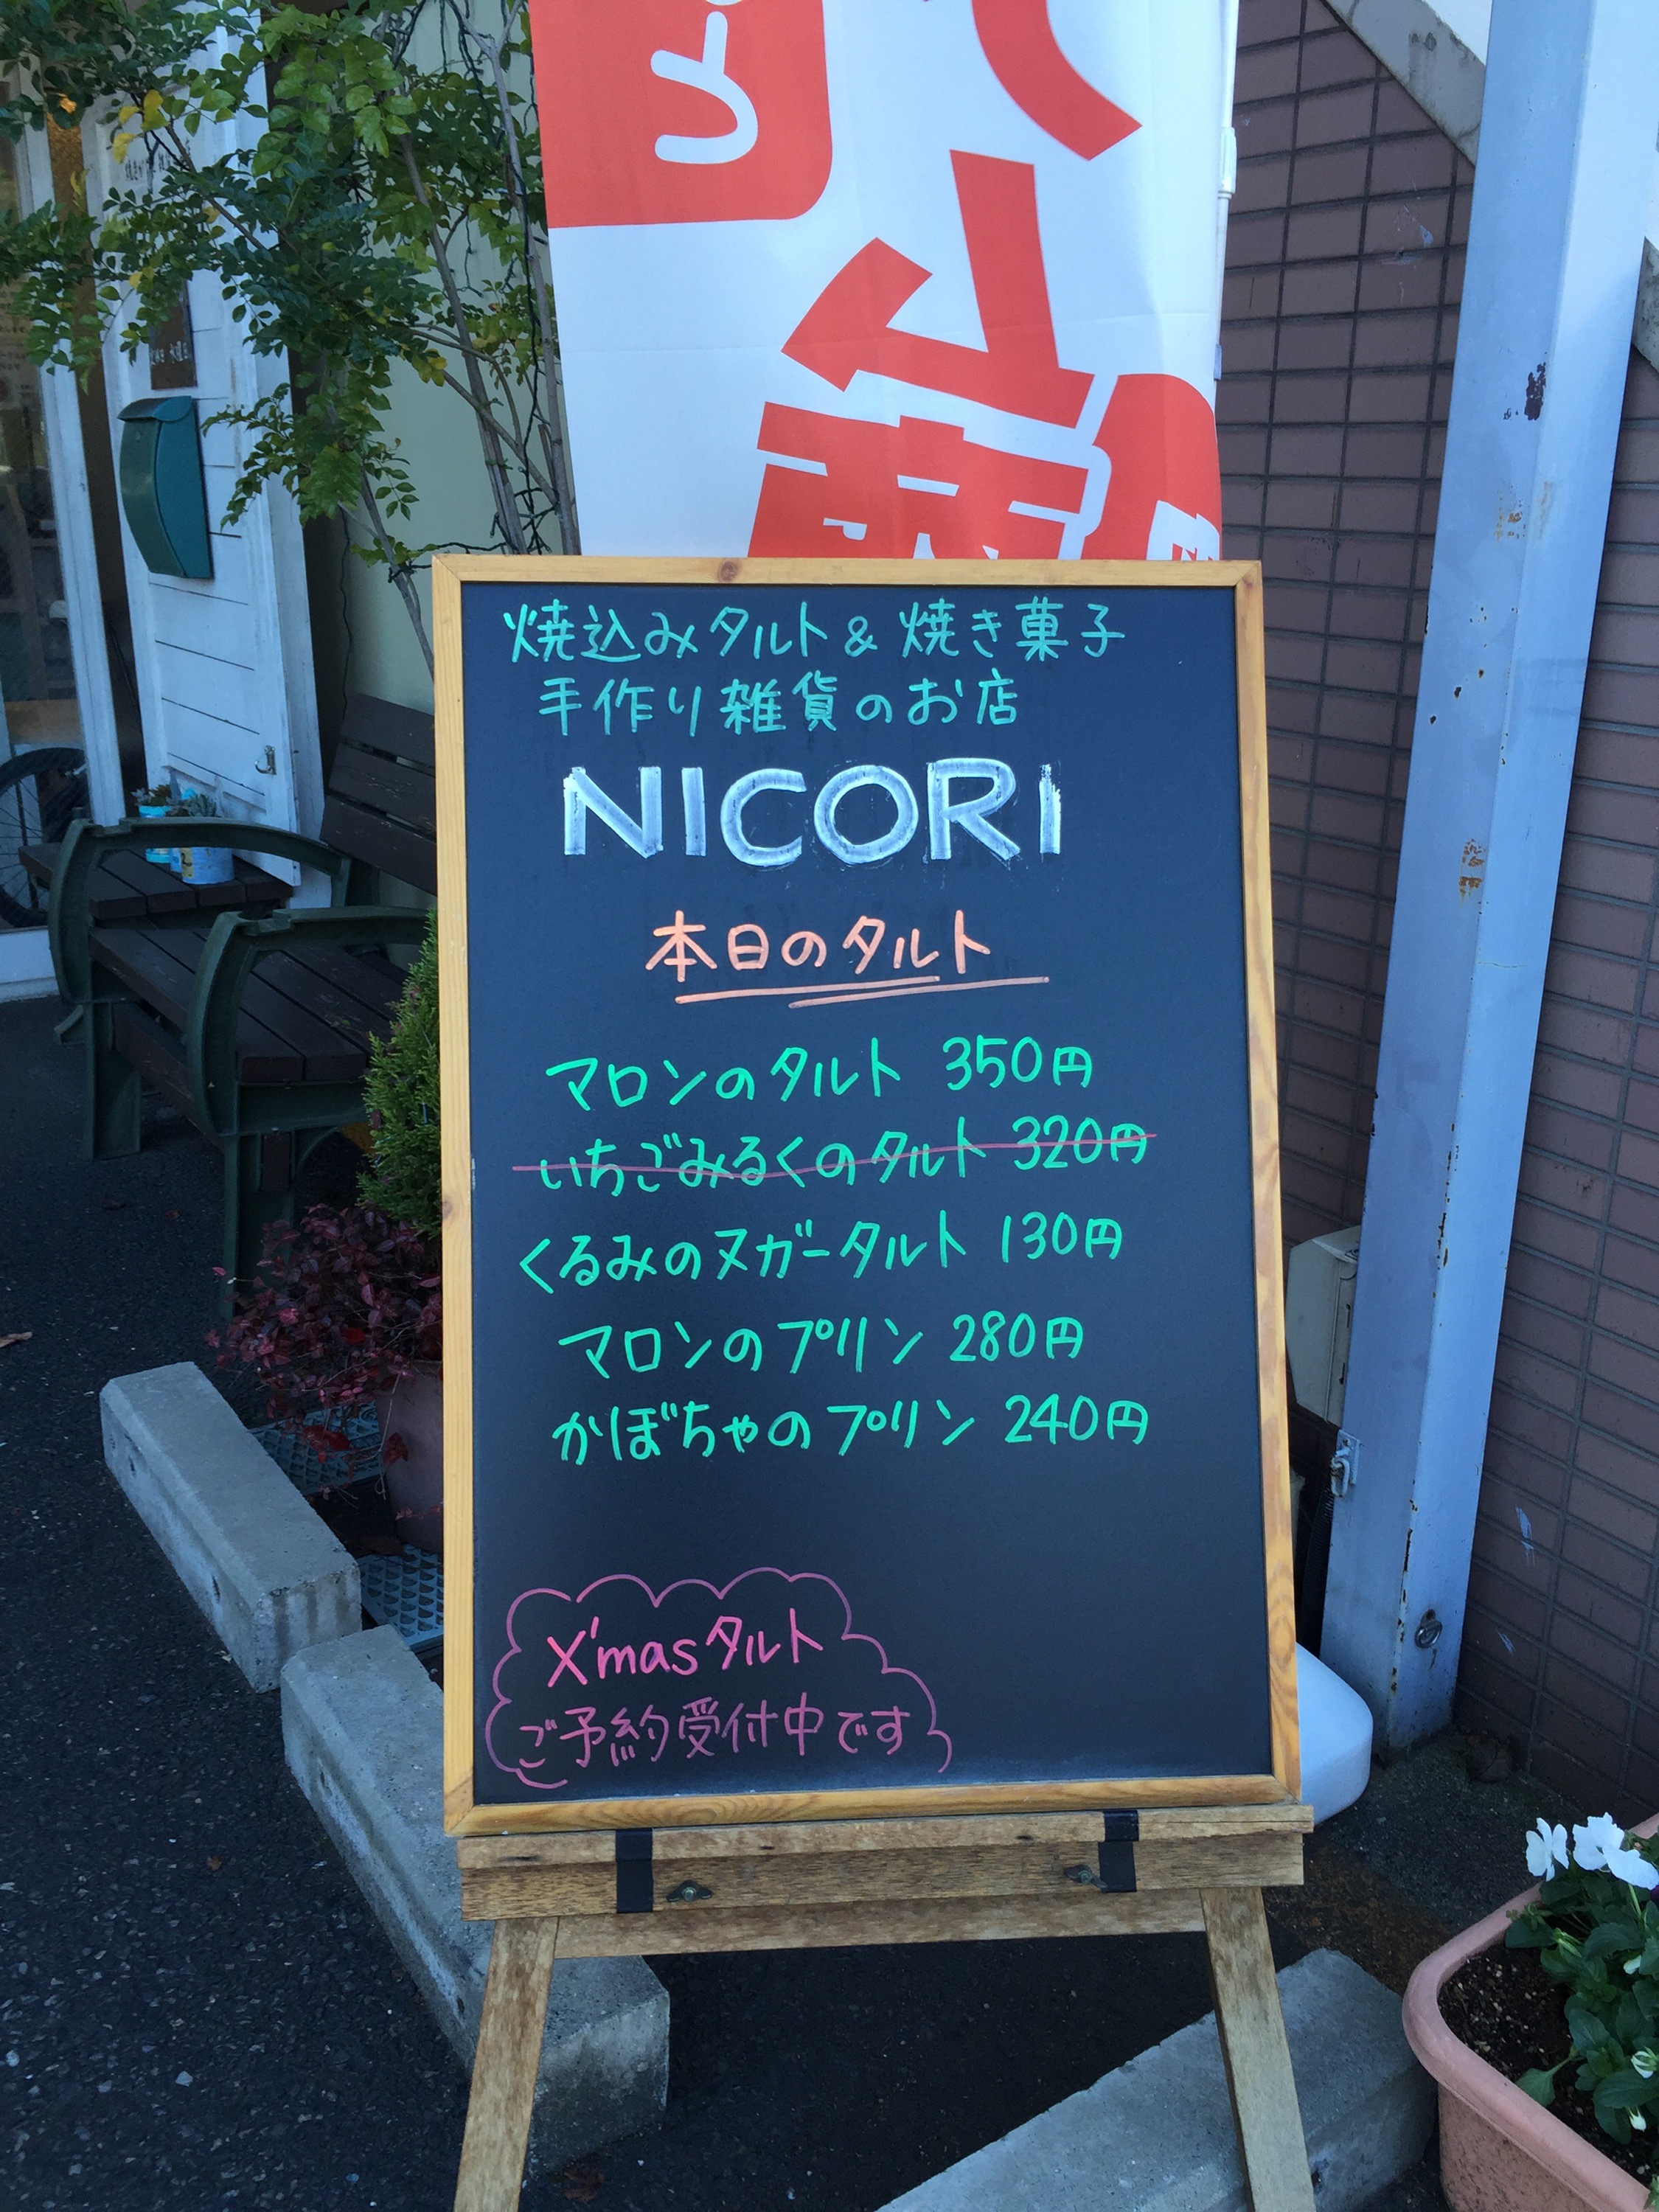 焼込みタルト & 焼き菓子
手作り雑貨のお店
NICORI
本日のタルト
マロンのタルト 350円
いちごみるくのタルト 320円
くるみのヌガータルト 130円
マロンのプリン 280円
かぼちゃのプリン 240円
X'masタルト
ご予約受付中です